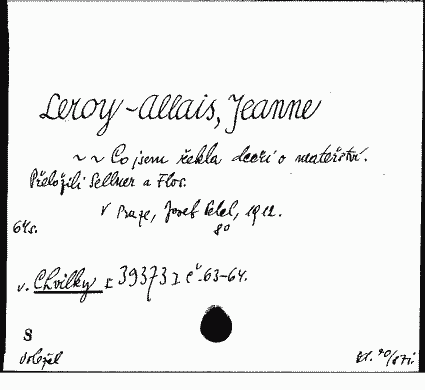 Leroy-Allais, Jeanne
~ ~ Co jsem řekla dceři o mateřství.
Přeložili Sellner a Flos.
V Praze, Josef 1912.
8°
64s.
v. Chvilky E 39373 I č. 63-64.
8
Doležel